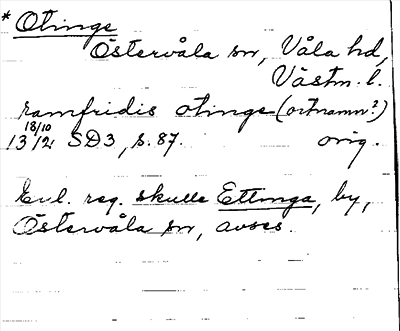 * Otinge
Östervåla sn, Våla hd,
Västm. l.
ramfridis otinge (ortnamn?)
18/10
1312 SD3, s. 87. orig.
Enl. reg. skulle Ettinga, by,
Östervåla sn, avses.